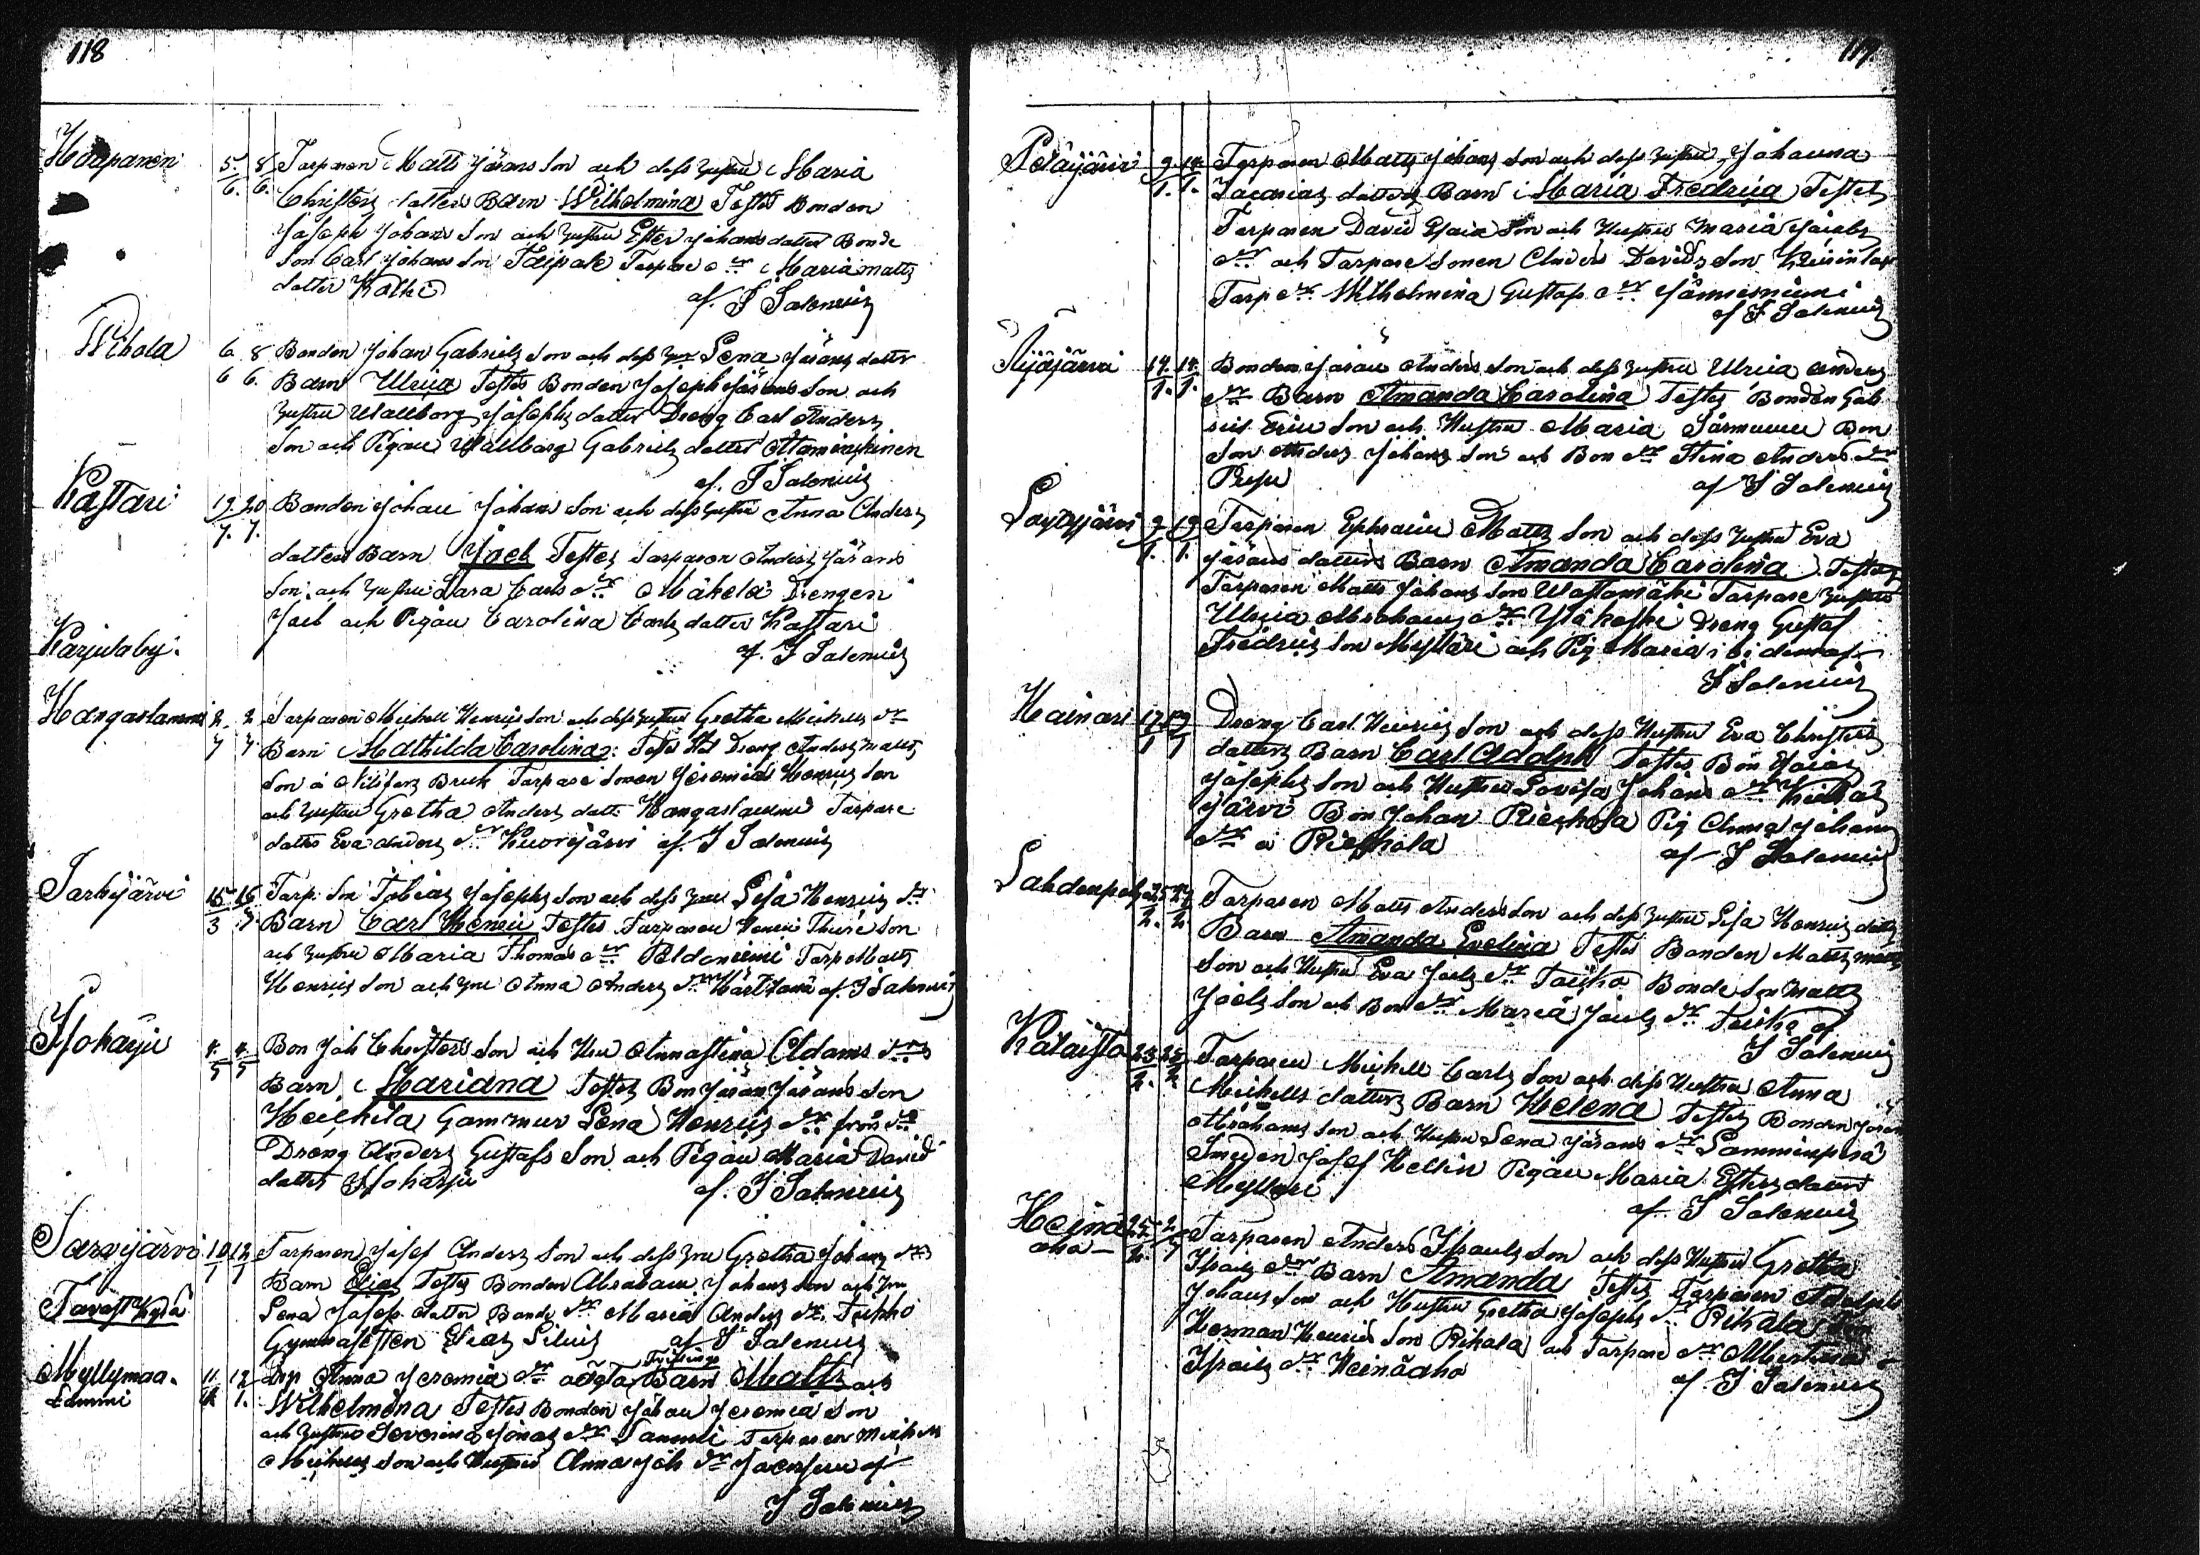 118
Haapanen 5/6. 8/6. Torparen Matts Jörans Son och dess hustru Maria
Christers datters Barn Wilhelmina Testes Bonden
Joseph Johans Son och hustru Ester Johans datter Bonde
Son Carl Johans Son Taipale Torpare dr Maria Matts
datter Kalke
af. J Salenius
Wihola 6/6 8/6. Bonden Johan Gabriels Son och dess hru Lena Jörans datter
Barn Ulrica Testes Bonden Joseph Jörans Son och
hustru Wallborg Josephs datter Dreng Carl Anders
Son och Pigan Wallborg Gabriels datter
af. J Salenius
Kastari 19/7. 20/7. Bonden Johan Johans Son och dess hustru Anna Anders
datters Barn Joel Testes Torparen Anders Jörans
Son och hustru Sara Carls dr Mäkelä Drengen
Joel och Pigan Carolina Carls datter Kastari
af. J Salenius
Karjulaby.
Kangaslammi 2/7 2/7 Torparen Michell Henrics Son och dess hustru Gretha Michells dr
Barn Mathilda Carolina: Testes Dreng Anders Matts
Son å Bruk Torpare Sonen Jeremias Henrics Son
och hustru Gretha Anders datt. Kangaslammi Torpare
datter Eva Anders dr Kuorejärvi af. J Salenius
Sarkijärvi 15/3 16/7. Torp. Son Tobias Josephs Son och dess hru Lisa Henrics dr
Barn Carl Henric Testes Torparen Henric Thure Son
och hustru Maria Thomas dr Peldoniemi Torp Matts
Henrics Son och hru Anna Anders dr af. J Salenius
Isoharju 4/5 4/5 Bon Joh Christers Son och Hru Annastina Adams drs
Barn Mariana Testes Bon Jöran Jörans Son
Heickilä Gammur Lena Henrics dr från do
Dreng Anders Gustafs Son och Pigan Maria David
datter Isoharju af. J Salenius
Sarvijärvi 10/1 12/1 Torparen Josef Anders Son och dess hru Gretha Johans drs
Barn Elias Testes Bonden Abraham Johans Son och hru
Lena Joseps datter Bonde dr Maria Anders dr.
Tavastkyrö
Gymnasisten Elias Silius af J Salenius
Myllymaa-
Lammi 11/1 12/1. Drp Anna Jeremia dr oägta Tvillings Barn Matts och
Wilhelmina Testes Bonden Johan Jeremia Son
och hustru Severina Jonas dr Lammi Torparen Michell
Michells Son och Hustru Anna Joh dr af
J Salenius
119
Petäjärvi 9/1. 14/1. Torparen Matts Johans Son och dess hustru Johanna
Zacarias datters Barn Maria Fredrica Testes
Torparen David Esaia Son och Hustru Maria Jacobs
dr och Torpare Sonen Anders Davids Son
Torp dr Wilhelmina Gustafs dr Jämiesniemi
af J Salenius
14/1. 14/1. Bonden Jöran Anders Son och dess hustru Ulrica Anders
dr Barn Amanda Carolina Testes Bonden Gab
riel Eric Son och Hustru Maria Bon
Son Anders Johans Son och Bon dr Stina Anders dr
af J Salenius
9/1. 19/1. Torparen Ephraim Matts Son och dess hustru Eva
Jörans datters Barn Amanda Carolina. Testes
Torparen Matts Johans Son Wastamäki Torpare hustru
Ulrica Abrahams dr Yläkoski Dreng Gustaf
Fredrics Son Mylläri och Pig Maria ibidem af
J Salenius
Hainari 17/1 19/1 Dreng Carl Henrics Son och dess Hustru Eva Christers
datters Barn Carl Adolph Testes Bon Esaias
Josephs Son och Hustru Lovisa Johans dr
järvi Bon Johan Rieskola Pig Anna Johans
dr å Rieskola af J Salenius
Lahdenpoh 25/2. 27/2. Torparen Matts Anders Son och dess hustru Lisa Henrics datters
Barn Amanda Evelina Testes Bonden Matts Matts
Son och Hustru Eva Joels dr Bonde Son Matts
Joels Son och Bon dr Maria Joels dr af
J Salenius
Kalaisto 23/2. 25/2. Torparen Michell Carls Son och dess Hustru Anna
Michells datters Barn Helena Testes Bonden Jöran
Abrahams Son och Hustru Lena Jörans dr Lamminperä
Smeden Josef Hellin Pigan Maria Esters datter
Myllari
af J Salenius
Heinä
aho 25/2. Torparen Anders Israels Son och dess Hustru Gretha
Israels dr Barn Amanda Testes Torparen Adolph
Johans Son och Hustru Gretha Josephs dr Rikala
Herman Henrics Son Rikala och Torpare dr Albertina
Israels dr Heinäaho
af J Salenius